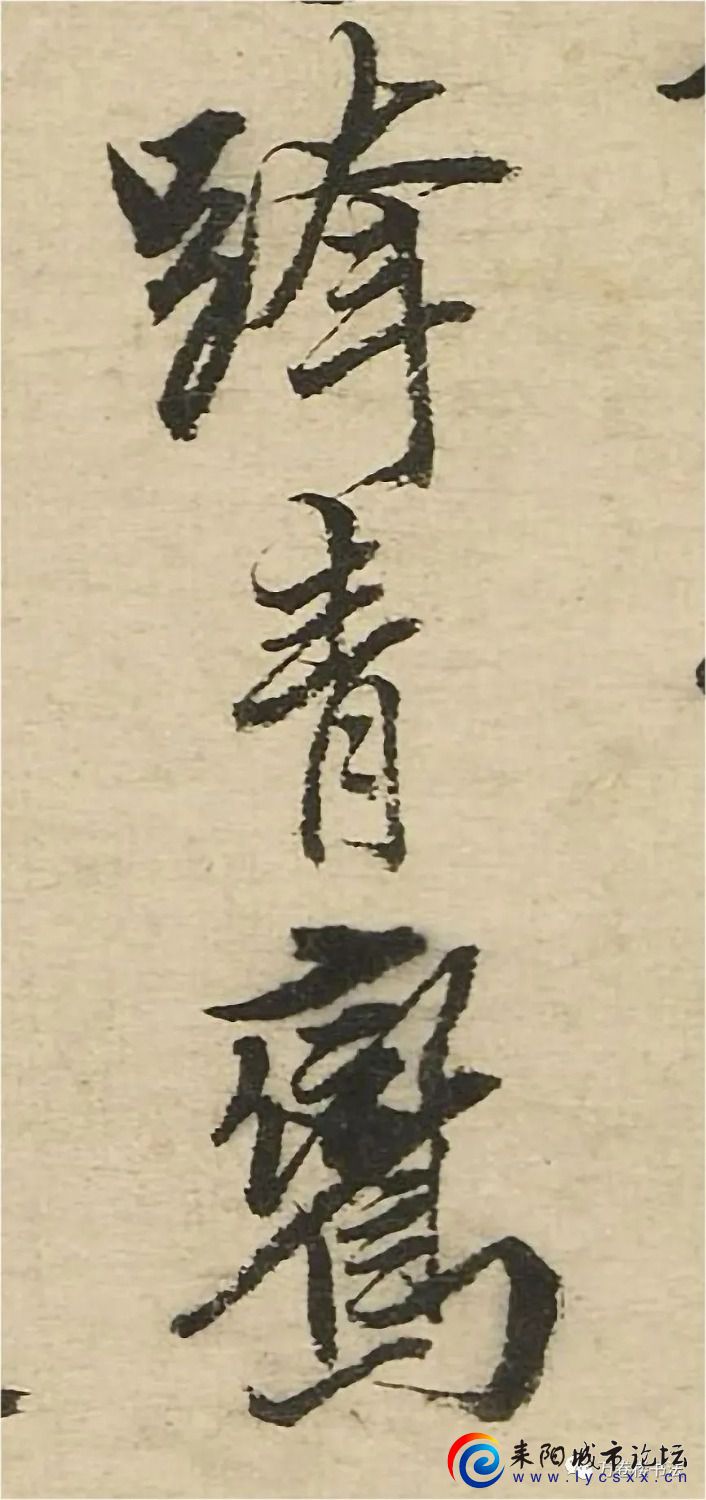 跨青鸞
耒阳城市论坛
www.lycsxx.cn